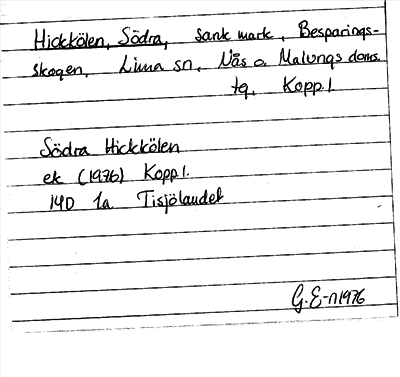 Hickkölen, Södra, sank mark, Besparings-
skogen, Lima sn, Nås o. Malungs doms.
tg, Kopp.l.
Södra Hickkölen
ek (1976) Kopp l.
14D 1a Tisjölandet
G.E-n 1976